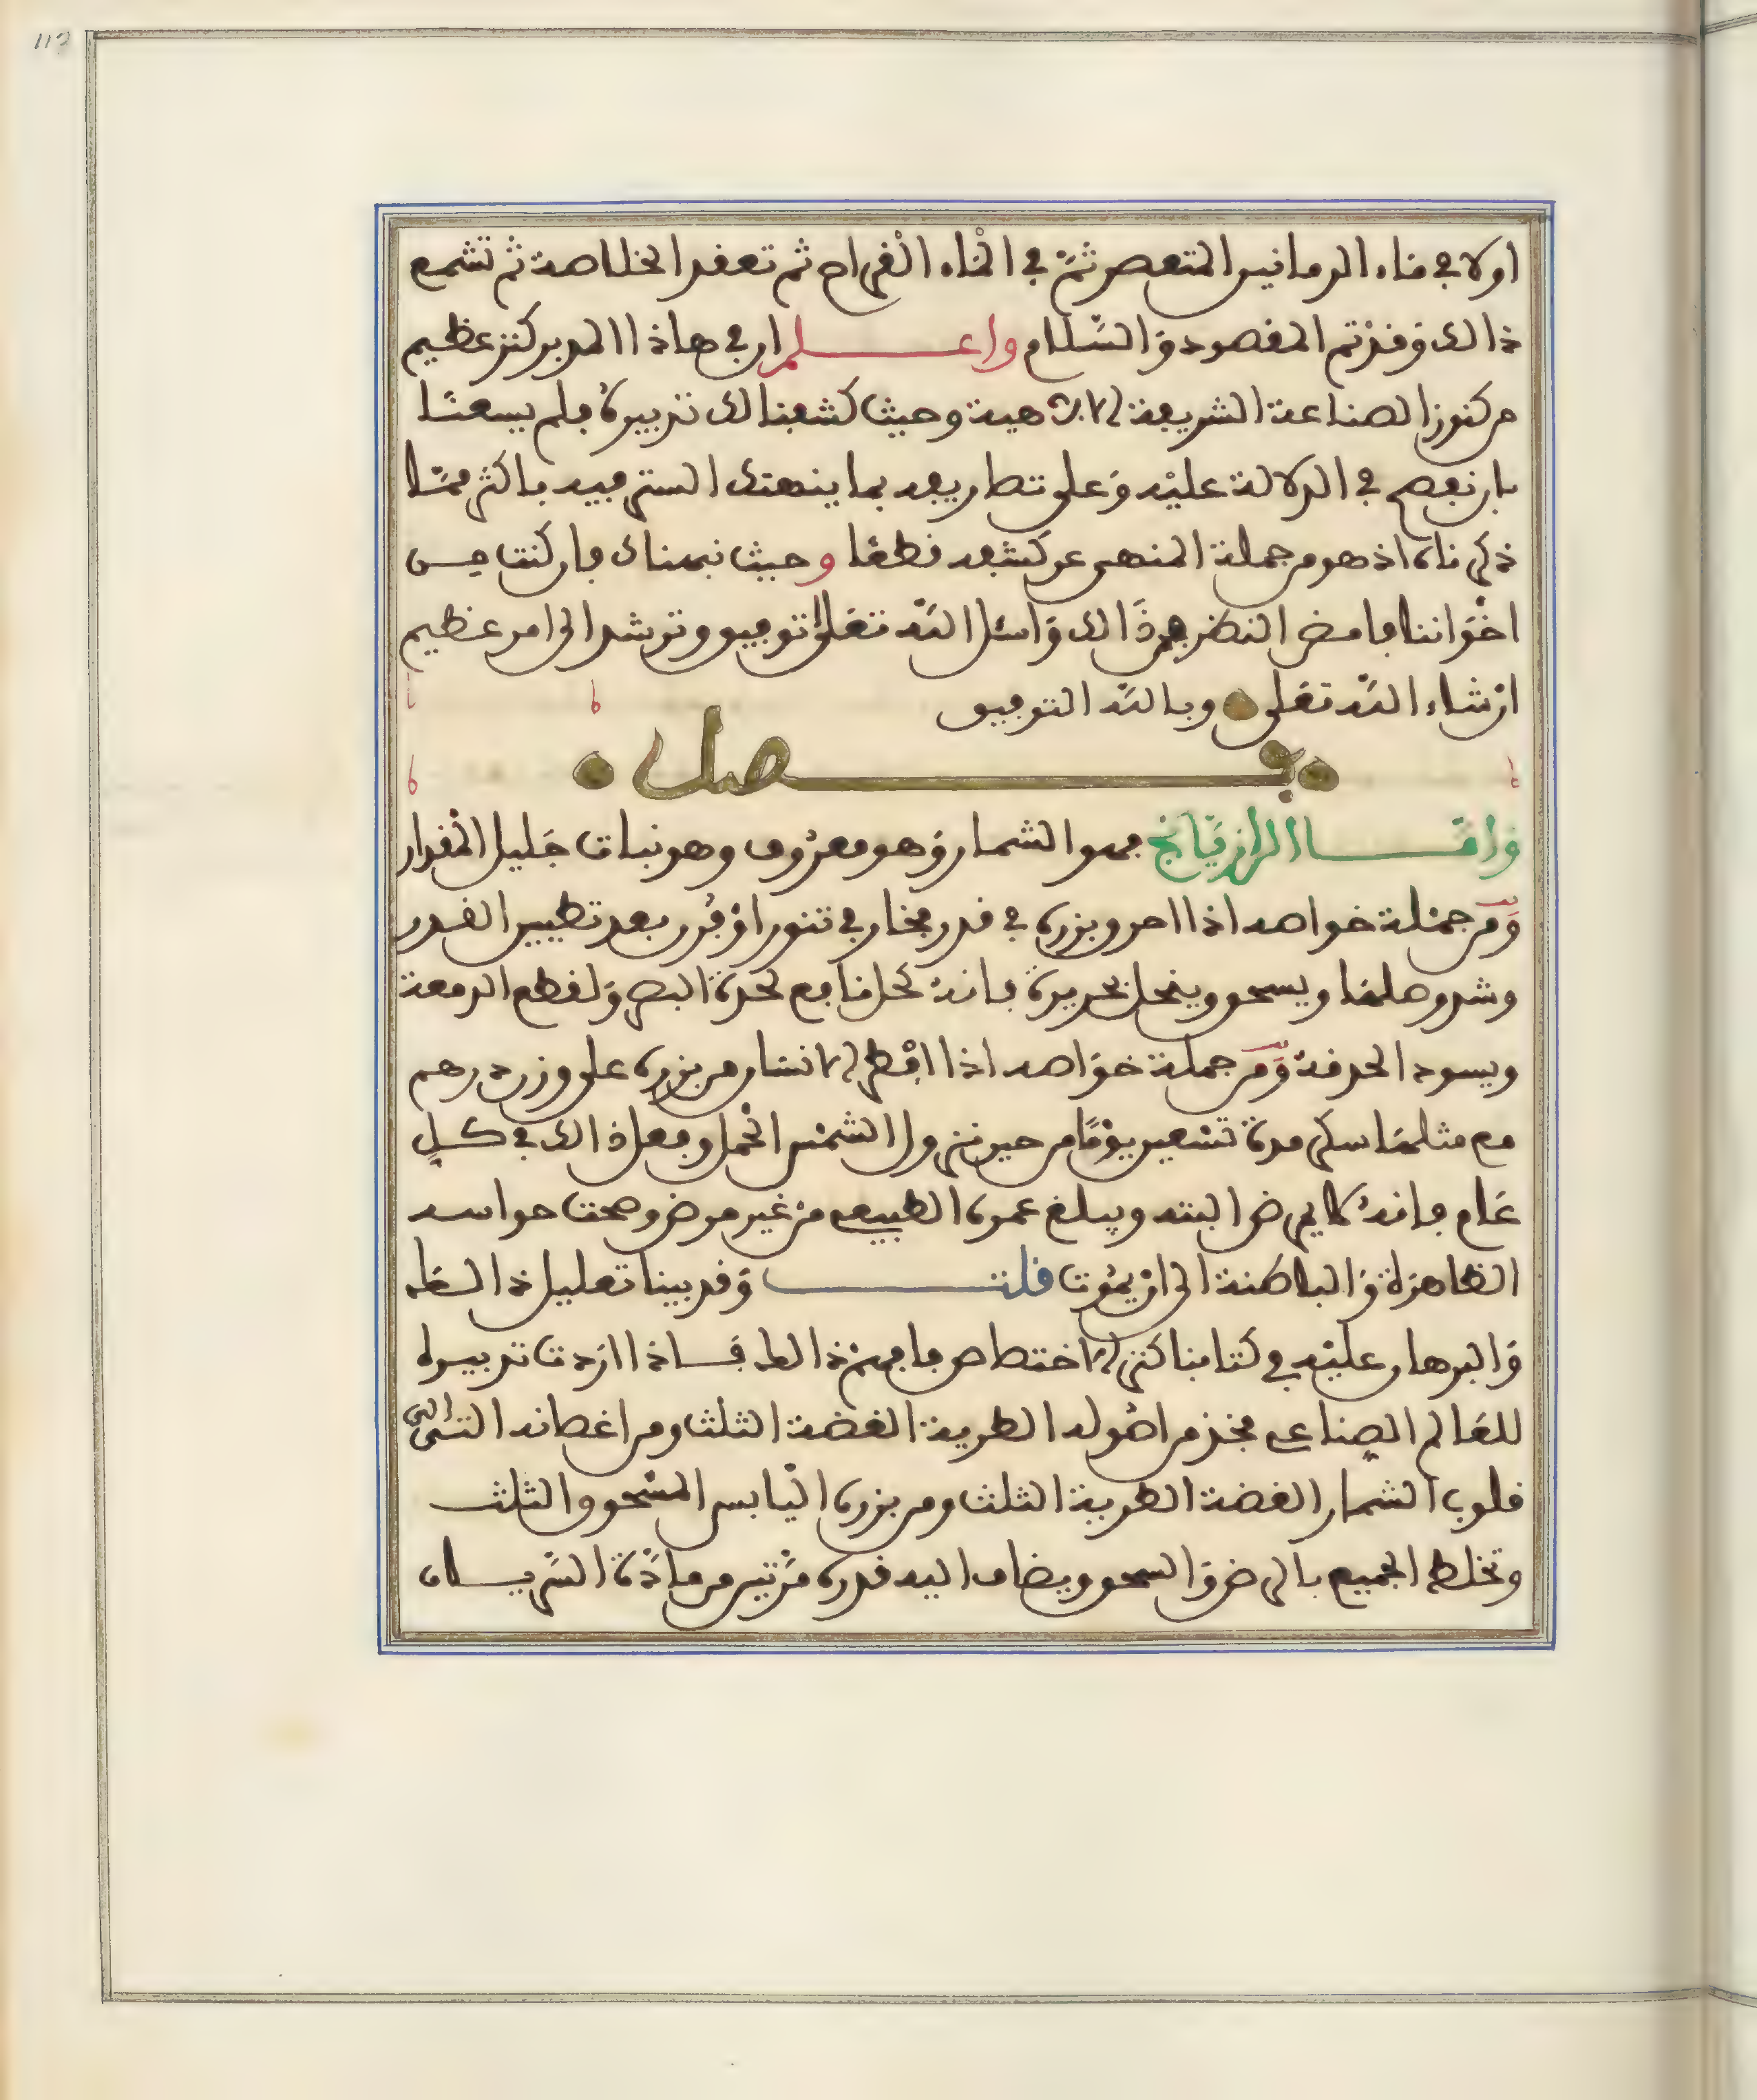 اولا في ماء الرمانين المتعصر ثم في الماء القراح ثم تعقد الخلاصة ثم تشمع
ذالك وقد تم المقصود والسلام واعلم ان في هاذا المدبر كنز عظيم
من كنوز الصناعة الشريفة الالاهية وحيث كشفنا لك تدبيره فلم يسعنا
بان نفصح في الدلالة عليه وعلى تصاريفه بما ينهتك الستر فيه باكثر مما
ذكرناه اذ هو من جملة المنهى عن كشفه قطعا وحيث نبهناك فان كنت من
اخواننا فامض النظر في ذالك واسئل الله تعلى توفيق وترشد الى امر عظيم
ان شاء الله تعلى وبالله التوفيق
فصل
واما الرازيانج فهو الشمار وهو معروف وهو نبات جليل المقدار
ومن جملة خواصه اذا احرق بزره في قدر فخار في تنور او فرن بعد تطيين القدر
وشد وصلها ويسحق وينخل بحريرة فانه كحل نافع لحدة البصر ولقطع الدمعة
ويسود الحدقة ومن جملة خواصه اذا افطر الانسان من بزره على وزن درهم
مع مثلها سكر مدة تسعين يوما من حين نزول الشمس الحمل وفعل ذالك في كل
عام فانه لا يمرض البتة ويبلغ عمره الطبيعي من غير مرض وصحت حواسه
الظاهرة والباطنة الى ان يموت قلت وقد بينا تعليل ذالك
والبرهان عليه في كتابنا كنز الاختصاص فافهم ذالك فاذا اردت تدبيره
للعالم الصناعي فخذ من اصوله الطرية الغضة الثلث ومن اغصانه التي
قلوب الشمار الغضة الطرية الثلث ومن بزره اليابس المسحوق الثلث
وتخلط الجميع بالرض والسحق ويضاف اليه قدره مرتين من مادة السريان